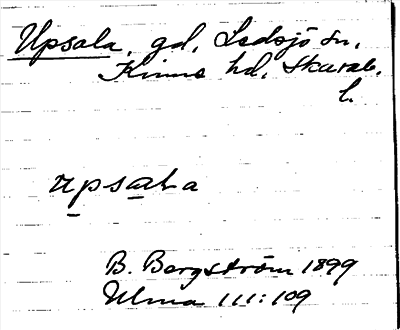 Upsala, gd, Ledsjö sn,
Kinne hd, Skarab.
l.
upsala
B. Bergström 1899
Ulma 111:109